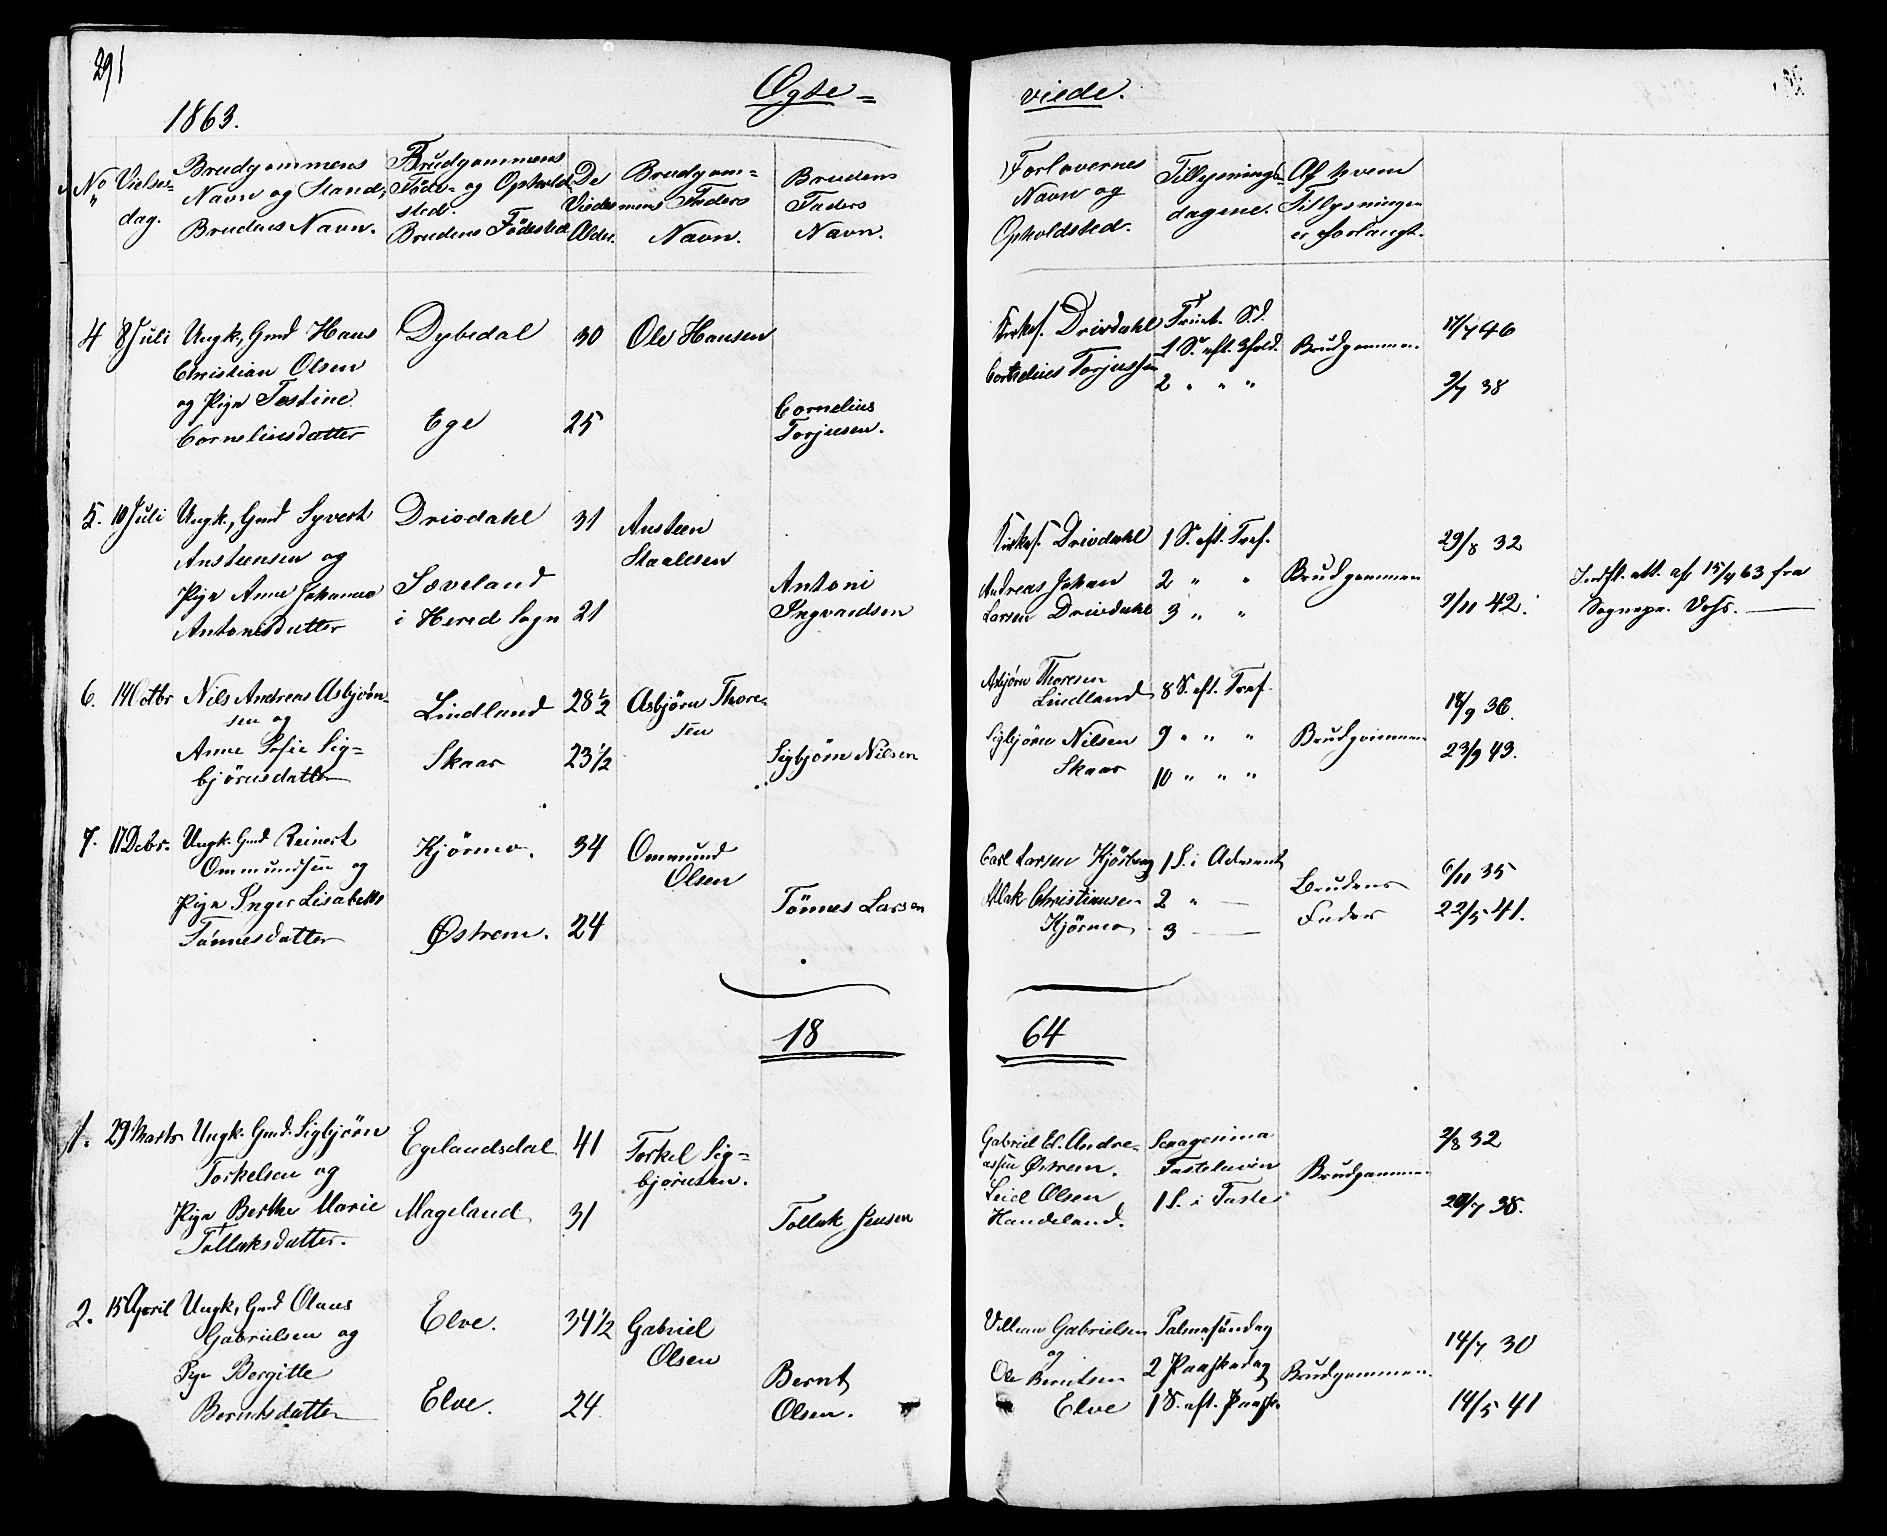 291
1863.
Ægte= viede.
No
Vielses-
dag.
Brudgommens
Navn og Stand,
Brudens Navn.
Brudgommens
Føde- og Ophold
sted.
Brudens Födested
De
Viedes
Alder.
Brudgom=
mens Faders
Navn.
Brudens
Faders
Navn.
Forlovernes
Navn og
Opholdsted.
Tillysnings-
dagene.
Af hvem
Tillysningen
er forlangt.
4 8 Juli Ungk, Gmd Hans
Christian Olsen
og Pige Tostine
Corneliusdatter
Dybedal 30 Ole Hansen
Ege 25 Cornelius
Torjusen.
Kirkes. Drivdahl
Cornelius Torjussen
Trinit. S.d.
1 S. eft. 3fold.
2 " " "
Brudgommen
17/7 46
9/7 38
5. 10 Juli Ungk, Gmd Syvert
Ansteensen og
Pige Anne Johanne
Antonisdatter
Drivdahl 31 Ansteen
Staalesen
Sæveland
i Hered Sogn 21
Antoni
Ingvardsen
Kirkes. Drivdahl
Andreas Johan
Larsen Drivdahl
1 S. eft. Tref.
2 " "
3 " "
Brudgommen
29/8 32
2/11 42.
Indfl. att. af 15/4 63 fra
Sognepr. Vohs.
6. 14 Octbr Nils Andreas Asbjørn-
sen og
Anne Sofie Sig=
bjørnsdatter
Lindland 28 1/2 Asbjørn Thore-
sen
Skaar 23 1/2 Sigbjørn Nilsen
Asbjørn Thoresen
Lindland
Sigbjørn Nilsen
Skaar
8 S. eft. Tref.
9 " " "
10 " " "
Brudgommen
18/9 36.
23/9 43.
7. 17 Debr. Ungk. Gmd Reinert
Ommundsen og
Pige Inger Lisabeth
Tønnesdatter
Kjörmo. 34 Ommund
Olsen
Østrem. 24 Tönnes Larsen
Carl Larsen Kjørberg
Isak Christiansen
Kjörmo
1 S. i Advent
2 "
3
Brudens
Fader
6/11 35
22/5 41.
18 64
1. 29 Marts Ungk. Gmd. Sigbjørn
Torkelsen og
Pige Berthe Marie
Tollaksdatter.
Egelandsdal 41 Torkel Sig=
bjørnsen.
Mageland 31 Tollak Jensen
Gabriel El. Andre-
assen Østrem.
Leid Olsen
Handeland.
Sexagesima
Fastelavn
1 S. i Faste
Brudgommen
2/8 32
20/7 38.
2. 15 April Ungk, Gmd Olaus
Gabrielsen og
Pige Bergitte
Berntsdatter
Elve. 34 1/2 Gabriel
Olsen
Elve. 24 Bernt
Olsen.
Villum Gabrielsen
og
Ole Berntsen
Elve
Palmesøndag
2 Paaskedag
1 S. eft. Paaske
Brudgommen.
14/7 30
14/5 41